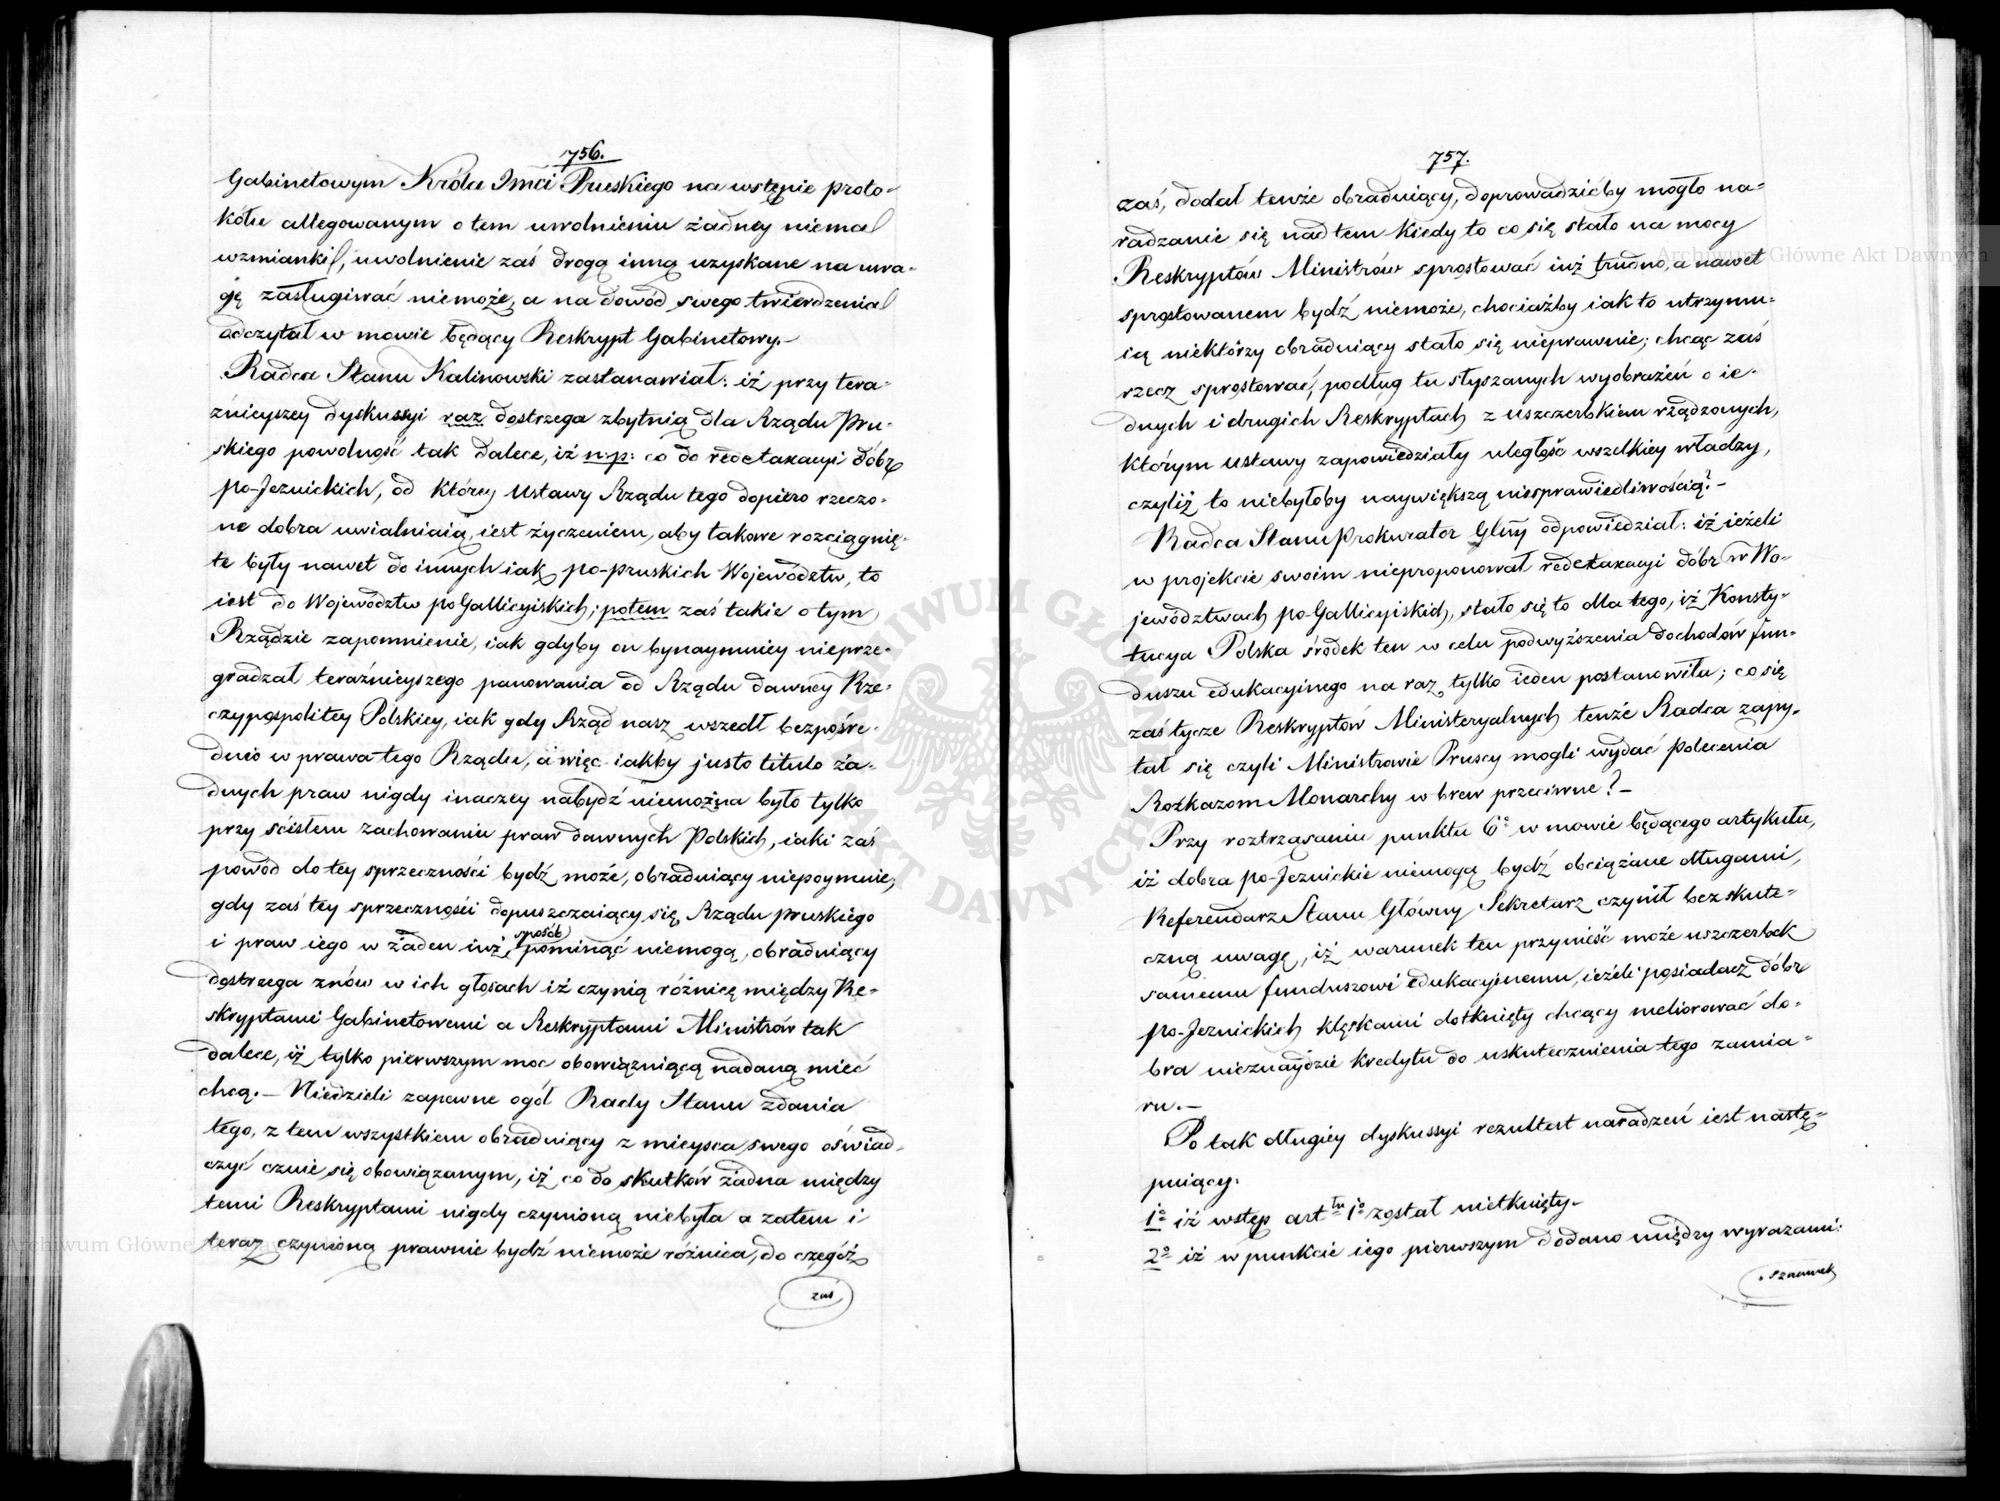 756.
Gabinetowym Króla Jmci Pruskiego na wstępie proto-
kółu allegowanym o tem uwolnieniu żadney niema
wzmianki, uwolnienie zaś drogą inną uzyskane na uwa-
gę zasługiwać niemoże, a na dowód swego twierdzenia
odczytał w mowie będący Reskrypt Gabinetowy.-
Radca Stanu Kalinowski zastanawiał: iż przy tera-
źnieyszey dyskussyi raz dostrzega zbytnią dla Rządu Pru-
skiego powolność tak dalece, iż n:p: co do redetaxacyi dóbr
po-Jezuickich, od którey Ustawy Rządu tego dopiero rzeczo-
ne dobra uwialniaią, iest życzeniem, aby takowe rozciągnię-
te były nawet do innych iak po-pruskich Województw, to
iest do Województw poGallicyiskich; potem zaś takie o tym
Rządzie zapomnienie, iak gdyby on bynaymniey nieprze-
gradzał teraźnieyszego panowania od Rządu dawney Rze-
czypospolitey Polskiey, iak gdy Rząd nasz wszedł bezpośre-
dnio w prawa tego Rządu, a więc iakby justo titulo ża-
dnych praw nigdy inaczey nabydź niemożna było tylko
przy scisłem zachowaniu praw dawnych Polskich, iaki zaś
powód do tey sprzeczności bydź może, obraduiący niepoymuie;
gdy zaś tey sprzeczności dopuszczaiący się Rządu pruskiego
i praw iego w żaden iuż sposób pominąć niemogą, obraduiący
dostrzega znów w ich głosach iż czynią różnicę między Re-
skryptami Gabinetowemi a Reskryptami Ministrów tak
dalece, iż tylko pierwszym moc obowiązuiącą nadaną mieć
chcą.- Niedzieli zapewne ogół Rady Stanu zdania
tego, z tem wszystkiem obraduiący z mieysca swego oświad-
czyć czuie się obowiązanym, iż co do skutków żadna między
temi Reskryptami nigdy czynioną niebyła a zatem i
teraz czynioną prawnie bydź niemoże różnica, do czegóż
zaś
757.
zaś, dodał tenże obraduiący, doprowadzićby mogło na-
radzanie się nad tem kiedy to co się stało na mocy
Reskryptów Ministrów sprostować iuż trudno, a nawet
sprostowanem bydź niemoże, chociażby iak to utrzymu-
ią niektórzy obraduiący stało się nieprawnie; chcąc zaś
rzecz sprostować, podług tu słyszanych wyobrażeń o ie-
dnych i drugich Reskryptach z uszczerbkiem rządzonych,
którym Ustawy zapowiedziały uległość wszelkiey władzy,
czyliż to niebyłoby naywiększą niesprawiedliwością?-
Radca Stanu Prokurator Glny odpowiedział: iż ieżeli
w projekcie swoim nieproponował redetaxacyi dóbr w Wo-
jewództwach po-Gallicyiskich, stało się to dla tego, iż Konsty-
tucya Polska środek ten w celu podwyższenia dochodów fun-
duszu edukacyinego na raz tylko ieden postanowiła; co się
zaś tycze Reskryptów Ministeryalnych tenże Radca zapy-
tał się czyli Ministrowie Pruscy mogli wydać polecenia
Rozkazom Monarchy w brew przeciwne?-
Przy roztrząsaniu punktu 6o w mowie będącego artykułu,
iż dobra po-Jezuickie niemogą bydź obciążane długami,
Referendarz Stanu Główny Sekretarz czynił bezskute-
czną uwagę, iż warunek ten przynieść może uszczerbek
samemu funduszowi edukacyjnemu, ieżeli posiadacz dóbr
po-Jezuickich klęskami dotknięty chcący meliorować do-
bra nieznaydzie kredytu do uskutecznienia tego zamia-
ru.-
Po tak długiéy dyskussyi rezultat naradzeń iest nastę-
puiący.
1o iż wstęp arttu 1o został nietknięty.
2o iż w punkcie iego pierwszym dodano między wyrazami:
„szacunek
Archiwum Główne Akt Dawnych
ARCHIWUM GŁÓWNE AKT DAWNYCH
Archiwum Główne Akt Dawnych